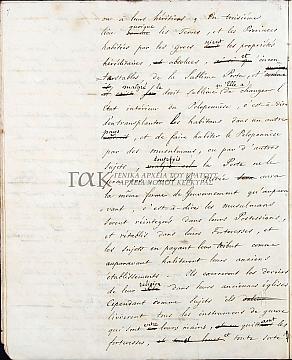 ou à leurs héritiers. En troisième
lieu quoique les Terres, et les Provinces
habitées par les Grecs soient les propriétés
héréditaires et absolues, et incon
testables, de la Sublime Porte, et
malgré le droit Sublime de changer l'
état intérieur du Péloponèse, c'est à dire
de transplanter les habitans dans un autre
pays, et de faire habiter le Péloponèse
par des musulmans, ou par d'autres
sujets, toutefois la Porte ne le
ΓΑΚ ΓΕΝΙΚΑ ΑΡΧΕΙΑ ΤΟΥ ΚΡΑΤΟΥΣ
ΑΡΧΕΙΑ ΝΟΜΟΥ ΚΕΡΚΥΡΑΣ
la même forme de Gouvernement qu'aupara
vant, c'est-à-dire les musulmans
seront réintégrés dans leurs Possessions,
et rétablis dans leurs Forteresses, et
les sujets en payant leur tribut comme
auparavant habiteront leurs anciens
établissements. Ils exerceront les devoirs
de leur religion dans leurs anciennes églises
Cependant comme sujets ils
livreront tous les instrumens de guerre
qui sont entre leurs mains, quitteront les
forteresses, et toute sorte